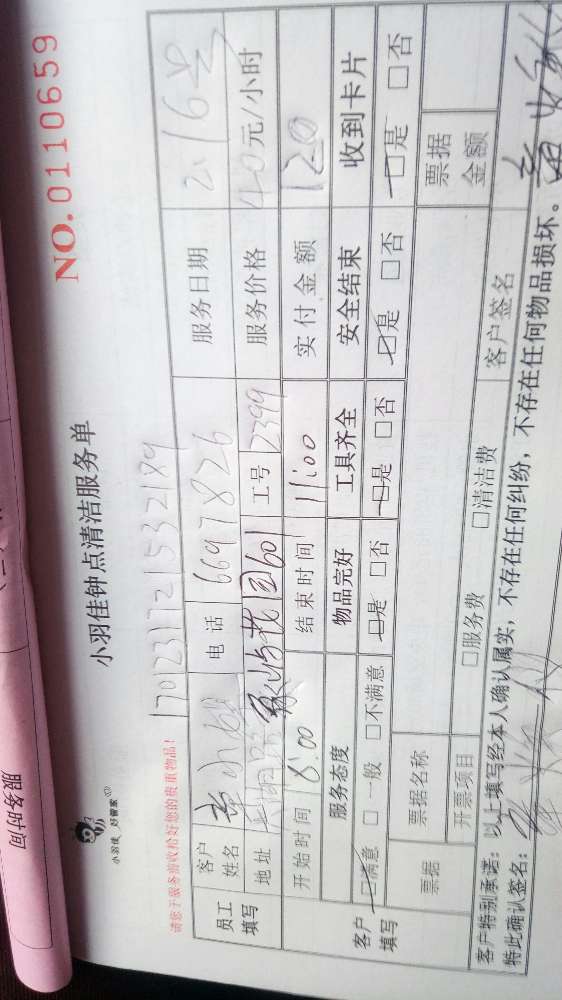 服务时间
小羽佳 好管家
小羽佳钟点清洁服务单
NO.0110659
请您于服务前收拾好您的贵重物品!
1701231721532189
员工填写 客户姓名 小姐 电话 6697826 服务日期 2.16号
地址 花园601 工号 2399 服务价格 40元/小时
开始时间 8:00 结束时间 11:00 实付金额 120
客户填写 服务态度 物品完好 工具齐全 安全结束 收到卡片
□满意 □一般 □不满意 □是 □否 □是 □否 □是 □否 □是 □否
票据 票据名称 票据金额
开票项目 □服务费 □清洁费 客户签名
客户特别承诺: 以上填写经本人确认属实, 不存在任何纠纷, 不存在任何物品损坏。
特此确认签名: